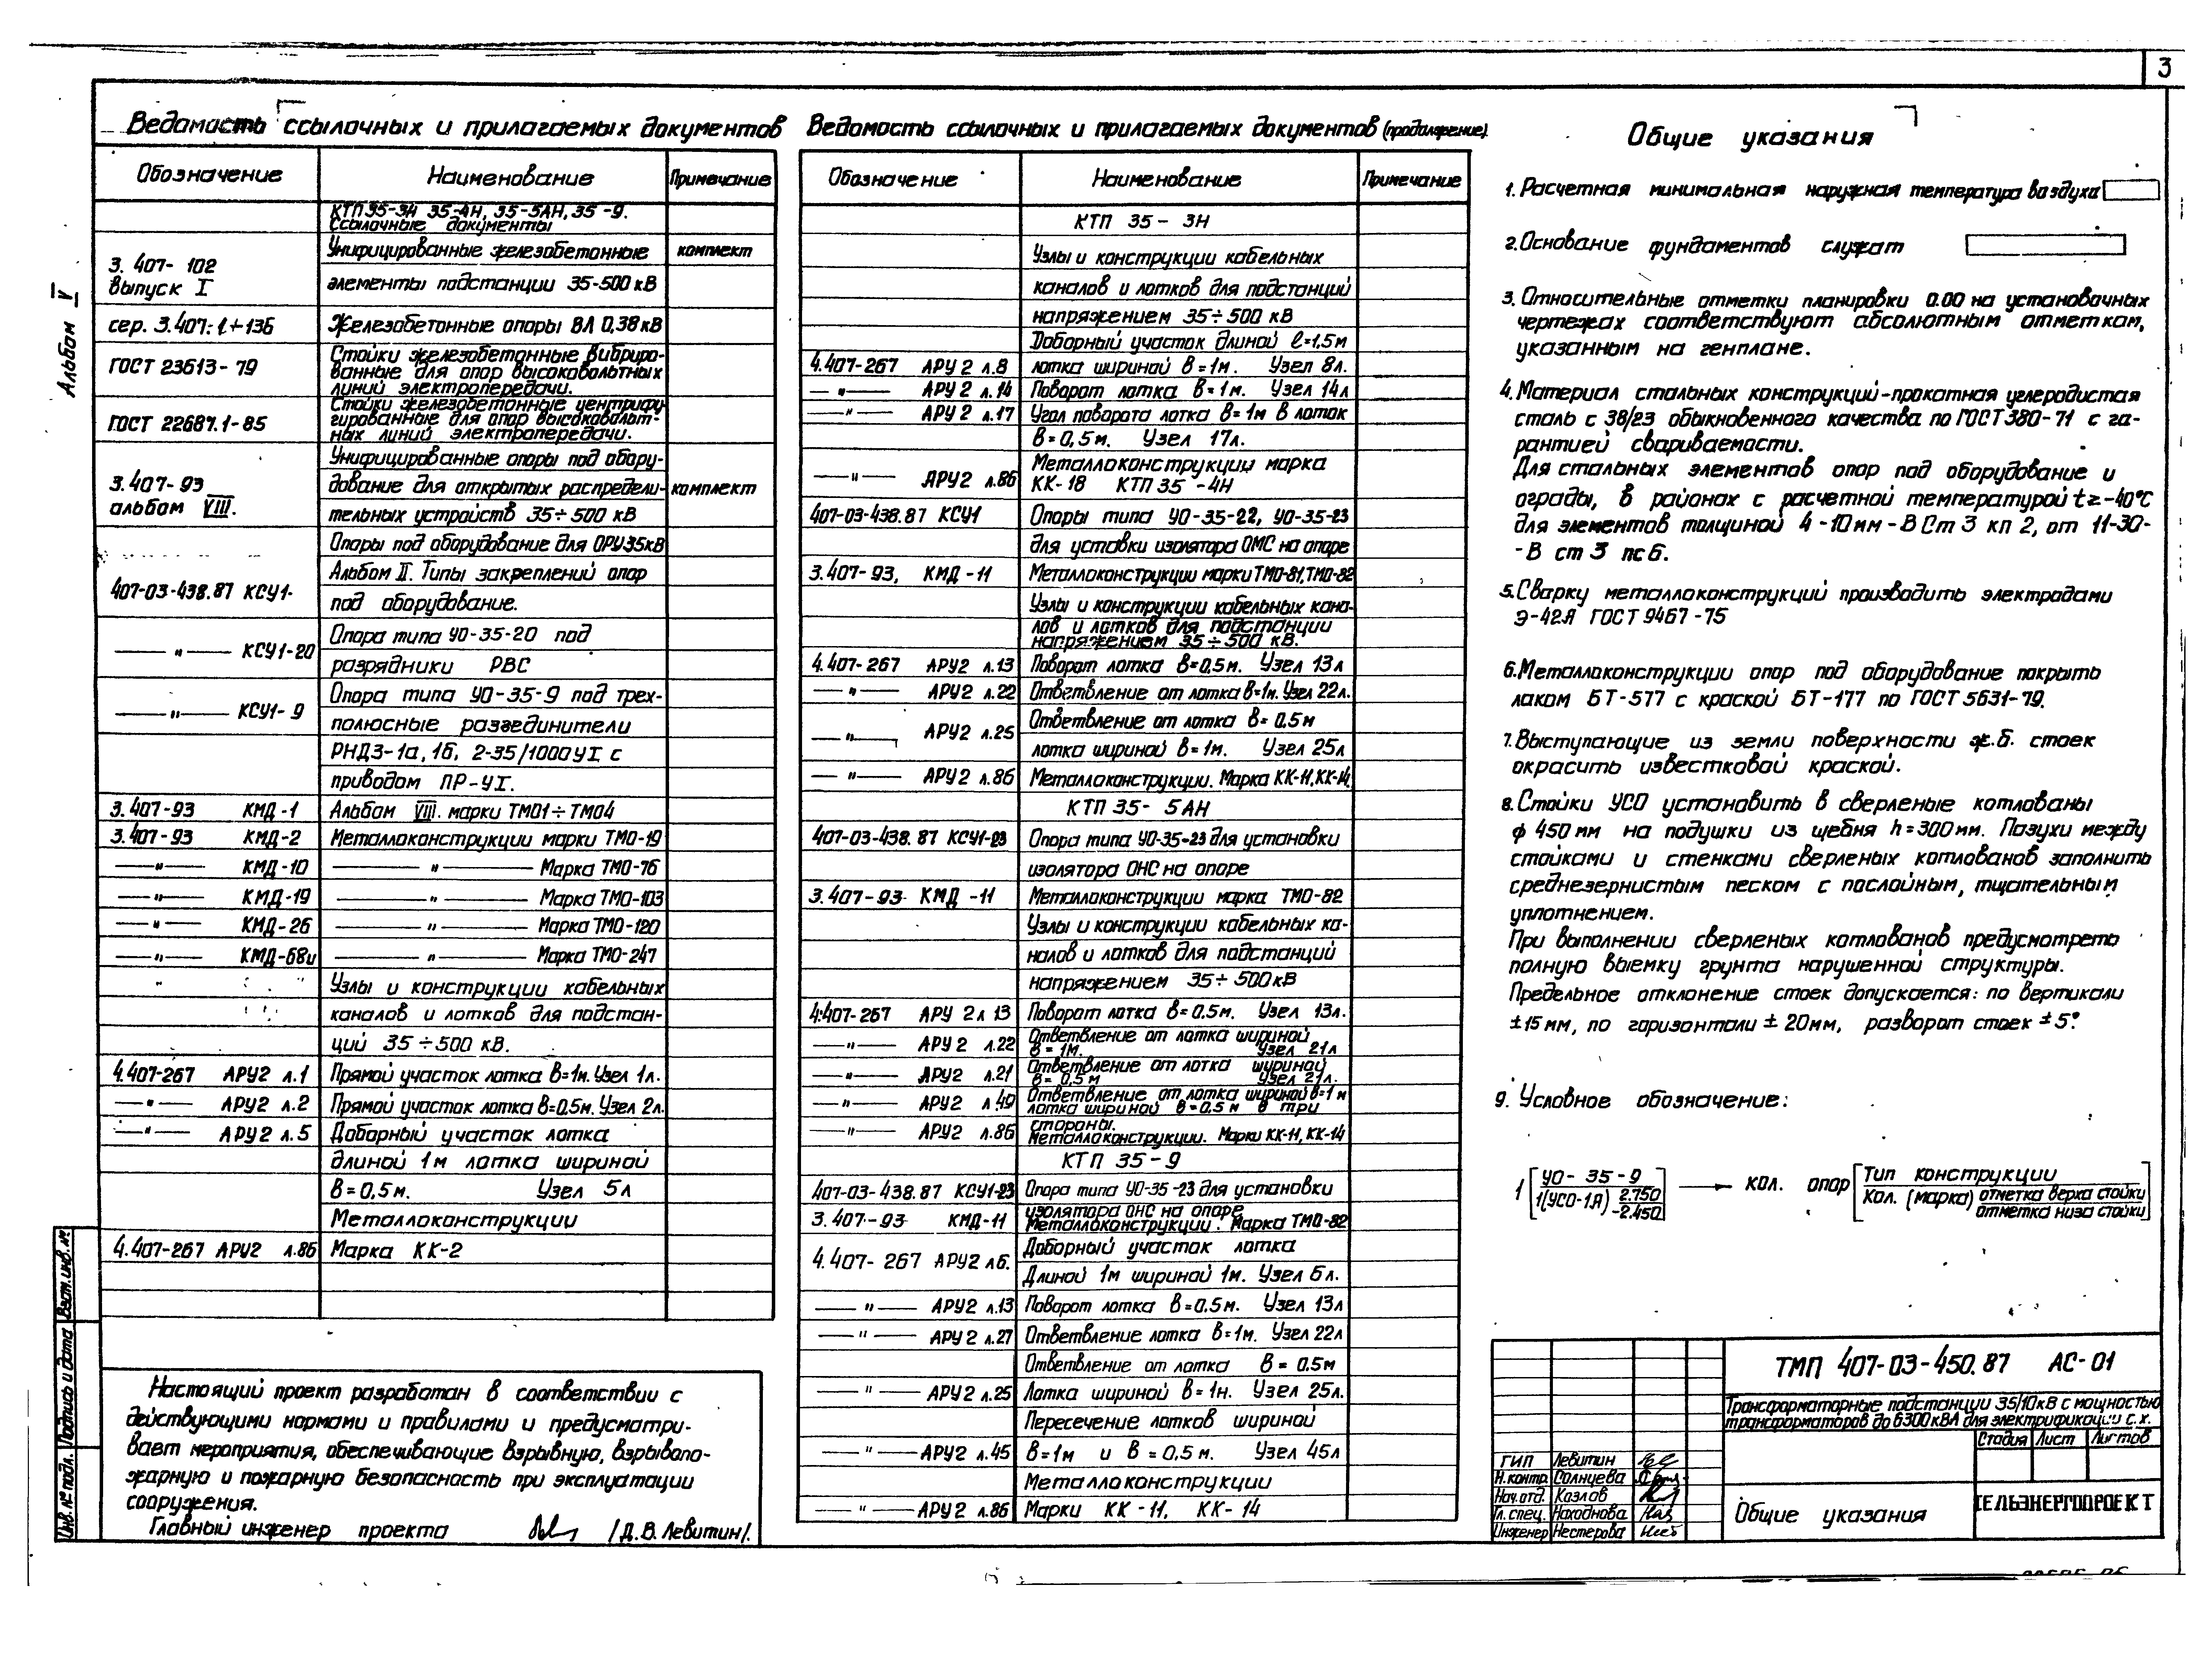 3
Альбом V
Ведомость ссылочных и прилагаемых документов
Обозначение Наименование Примечание
КТП 35-3Н 35-4Н, 35-5АН, 35-9.
Ссылочные документы
3.407-102 выпуск I Унифицированные железобетонные комплект
элементы подстанции 35-500 кВ
сер. 3.407.1-136 Железобетонные опоры ВЛ 0,38 кВ
ГОСТ 23613-79 Стойки железобетонные вибриро-
ванные для опор высоковольтных
линий электропередачи.
ГОСТ 22687.1-85 Стойки железобетонные центрифу
гированные для опор высоковольт-
ных линий электропередачи.
3.407-93 альбом VIII. Унифицированные опоры под обору-
дование для открытых распредели- комплект
тельных устройств 35÷500 кВ
Опоры под оборудование для ОРУ35кВ
407-03-438.87 КСУ1- Альбом II. Типы закреплений опор
под оборудование.
—"— КСУ1-20 Опора типа УО-35-20 под
разрядники РВС
—"— КСУ1-9 Опора типа УО-35-9 под трех-
полюсные разъединители
РНДЗ-1а, 1б, 2-35/1000 У1 с
приводом ПР-У1.
3.407-93 КМД-1 Альбом VIII. марки ТМО1÷ТМО4
3.407-93 КМД-2 Металлоконструкции марки ТМО-19
—"— КМД-10 —"— Марка ТМО-76
—"— КМД-19 —"— Марка ТМО-103
—"— КМД-26 —"— Марка ТМО-120
—"— КМД-68и —"— Марка ТМО-247
Узлы и конструкции кабельных
каналов и лотков для подстан-
ций 35÷500 кВ.
4.407-267 АРУ2 л.1 Прямой участок лотка В=1м. Узел 1л.
—"— АРУ2 л.2 Прямой участок лотка В=0.5м. Узел 2л.
—"— АРУ2 л.5 Доборный участок лотка
длиной 1м лотка шириной
В=0,5м. Узел 5л
Металлоконструкции
4.407-267 АРУ2 л.86 Марка КК-2
Настоящий проект разработан в соответствии с
действующими нормами и правилами и предусматри-
вает мероприятия, обеспечивающие взрывную, взрывопо-
жарную и пожарную безопасность при эксплуатации
сооружения.
Главный инженер проекта /Д.В.Левитин/.
Взам.инв.№
Подпись и дата
Инв.№ подл.
Ведомость ссылочных и прилагаемых документов (продолжение)
Обозначение Наименование Примечание
КТП 35-3Н
Узлы и конструкции кабельных
каналов и лотков для подстанций
напряжением 35÷500 кВ
Доборный участок длиной ℓ=1,5м
4.407-267 АРУ2 л.8 лотка шириной В=1м. Узел 8л.
—"— АРУ2 л.14 Поворот лотка В=1м. Узел 14л
—"— АРУ2 л.17 Угол поворота лотка В=1м в лоток
В=0,5м. Узел 17л.
—"— АРУ2 л.86 Металлоконструкции марка
КК-18 КТП 35-4Н
407-03-438.87 КСУ1 Опоры типа УО-35-22, УО-35-23
для уставки изолятора ОМС на опоре
3.407-93, КМД-11 Металлоконструкции марки ТМО-81, ТМО-82
Узлы и конструкции кабельных кана-
лов и лотков для подстанции
напряжением 35÷500 кВ.
4.407-267 АРУ2 л.13 Поворот лотка В=0,5м. Узел 13л
—"— АРУ2 л.22 Ответвление от лотка В=1м. Узел 22л.
—"— АРУ2 л.25 Ответвление от лотка В=0.5м
лотка шириной В=1м. Узел 25л
—"— АРУ2 л.86 Металлоконструкции. Марка КК-11, КК-14
КТП 35-5АН
407-03-438.87 КСУ1-23 Опора типа УО-35-23 для установки
изолятора ОНС на опоре
3.407-93 КМД-11 Металлоконструкции марка ТМО-82
Узлы и конструкции кабельных ка-
налов и лотков для подстанций
напряжением 35÷500кВ
4.407-267 АРУ2л 13 Поворот лотка В=0.5м. Узел 13л.
—"— АРУ2 л.22 Ответвление от лотка шириной
В=1м. Узел 21л
—"— АРУ2 л.21 Ответвление от лотка шириной
В=0,5м Узел 21л.
—"— АРУ2 л.49 Ответвление от лотка шириной В=1м
лотка шириной В=0,5м в три
стороны.
—"— АРУ2 л.86 Металлоконструкции. Марки КК-11, КК-14
КТП 35-9
407-03-438.87 КСУ1-23 Опора типа УО-35-23 для установки
изолятора ОНС на опоре
3.407-93 КМД-11 Металлоконструкции. Марка ТМО-82
4.407-267 АРУ2 л6. Доборный участок лотка
Длиной 1м шириной 1м. Узел 6л.
—"— АРУ2 л.13 Поворот лотка В=0.5м. Узел 13л
—"— АРУ2 л.27 Ответвление лотка В=1м. Узел 22л
Ответвление от лотка В=0.5м
—"— АРУ2 л.25 Лотка шириной В=1н. Узел 25л.
Пересечение лотков шириной
—"— АРУ2 л.45 В=1м и В=0,5м. Узел 45л
Металлоконструкции
—"— АРУ2 л.86 Марки КК-11, КК-14
Общие указания
1. Расчетная минимальная наружная температура воздуха
2. Основание фундаментов служат
3. Относительные отметки планировки 0.00 на установочных
чертежах соответствуют абсолютным отметкам,
указанным на генплане.
4. Материал стальных конструкций-прокатная углеродистая
сталь с 38/23 обыкновенного качества по ГОСТ 380-71 с га-
рантией свариваемости.
Для стальных элементов опор под оборудование и
ограды, в районах с расчетной температурой t≥-40°С
для элементов толщиной 4-10мм-В Ст 3 кп 2, от 11-30-
-В ст 3 пс 6.
5. Сварку металлоконструкций производить электродами
Э-42А ГОСТ 9467-75
6. Металлоконструкции опор под оборудование покрыть
лаком БТ-577 с краской БТ-177 по ГОСТ 5631-79.
7. Выступающие из земли поверхности ж.б. стоек
окрасить известковой краской.
8. Стойки УСО установить в сверленые котлованы
ф 450мм на подушки из щебня h=300мм. Пазухи между
стойками и стенками сверленых котлованов заполнить
среднезернистым песком с послойным, тщательным
уплотнением.
При выполнении сверленых котлованов предусмотреть
полную выемку грунта нарушенной структуры.
Предельное отклонение стоек допускается: по вертикали
±15мм, по горизонтали ±20мм, разворот стоек ±5°.
9. Условное обозначение:
1 [УО-35-9 / 1(УСО-1А) 2.750/-2.450] → кол. опор [Тип конструкции / Кол. (марка) отметка верха стойки/отметка низа стойки]
ТМП 407-03-450.87 АС-01
Трансформаторные подстанции 35/10кВ с мощностью
трансформаторов до 6300кВА для электрификации с.х.
Стадия Лист Листов
ГИП Левитин
Н.контр. Солнцева
Нач.отд. Козлов
Гл.спец. Находнова
Инженер Нестерова
Общие указания
СЕЛЬЭНЕРГОПРОЕКТ